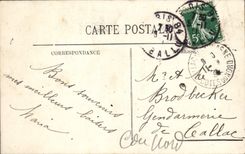 CARTE POSTALE
CORRESPONDANCE
Bons souvenirs
mes meilleurs baisers
Maria
M. et M.
Brodbecker
Gendarmerie
de Callac
Côtes du Nord